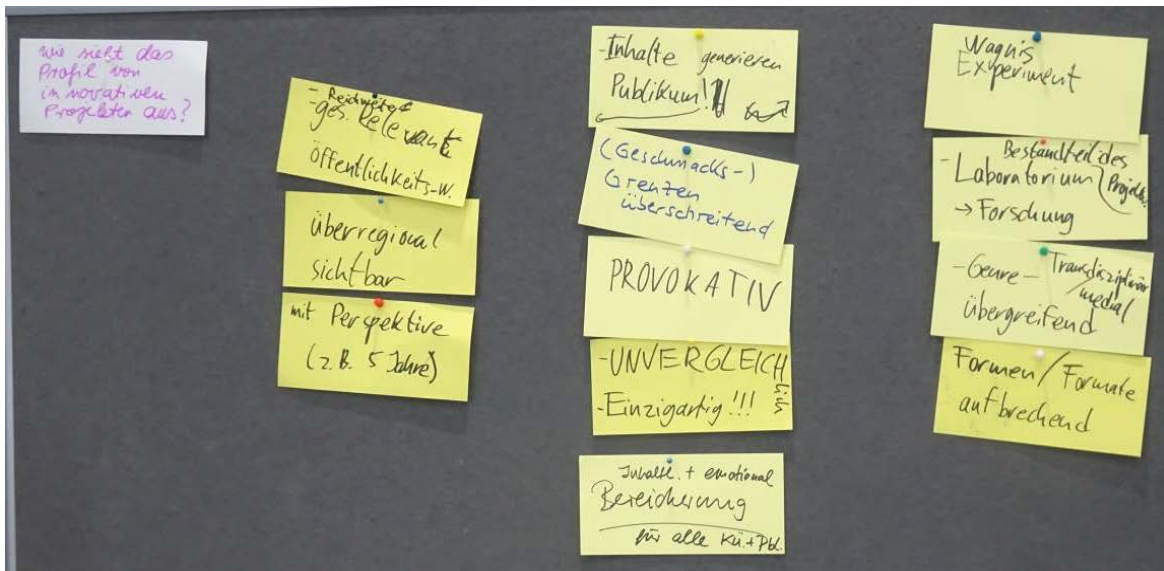 Wie sieht das
Profil von
innovativen
Projekten aus?
- Reichweite
- ges. Relevant
öffentlichkeits-w.
überregional
sichtbar
mit Perspektive
(z.B. 5 Jahre)
- Inhalte generieren
Publikum!
(Geschmacks-)
Grenzen
überschreitend
PROVOKATIV
- UNVERGLEICHlich
- Einzigartig!!!
Inhaltl. + emotional
Bereicherung
für alle Kü. + Pbl.
Wagnis
Experiment
Bestandteil des
- Laboratorium Projekts.
→ Forschung
- Genre - Transdisziplinär
/ medial
übergreifend
Formen / Formate
aufbrechend